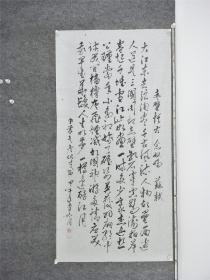 赤壁懷古 念奴嬌 蘇軾
大江東去浪淘盡千古風流人物故壘西邊
人道是三國周郎赤壁亂石穿空驚濤拍岸
卷起千堆雪江山如畫一時多少豪傑遙想
公瑾當年小喬初嫁了雄姿英發羽扇綸巾
談笑間檣櫓灰飛煙滅故國神遊多情應笑
我早生華髮人生如夢一樽還酹江月